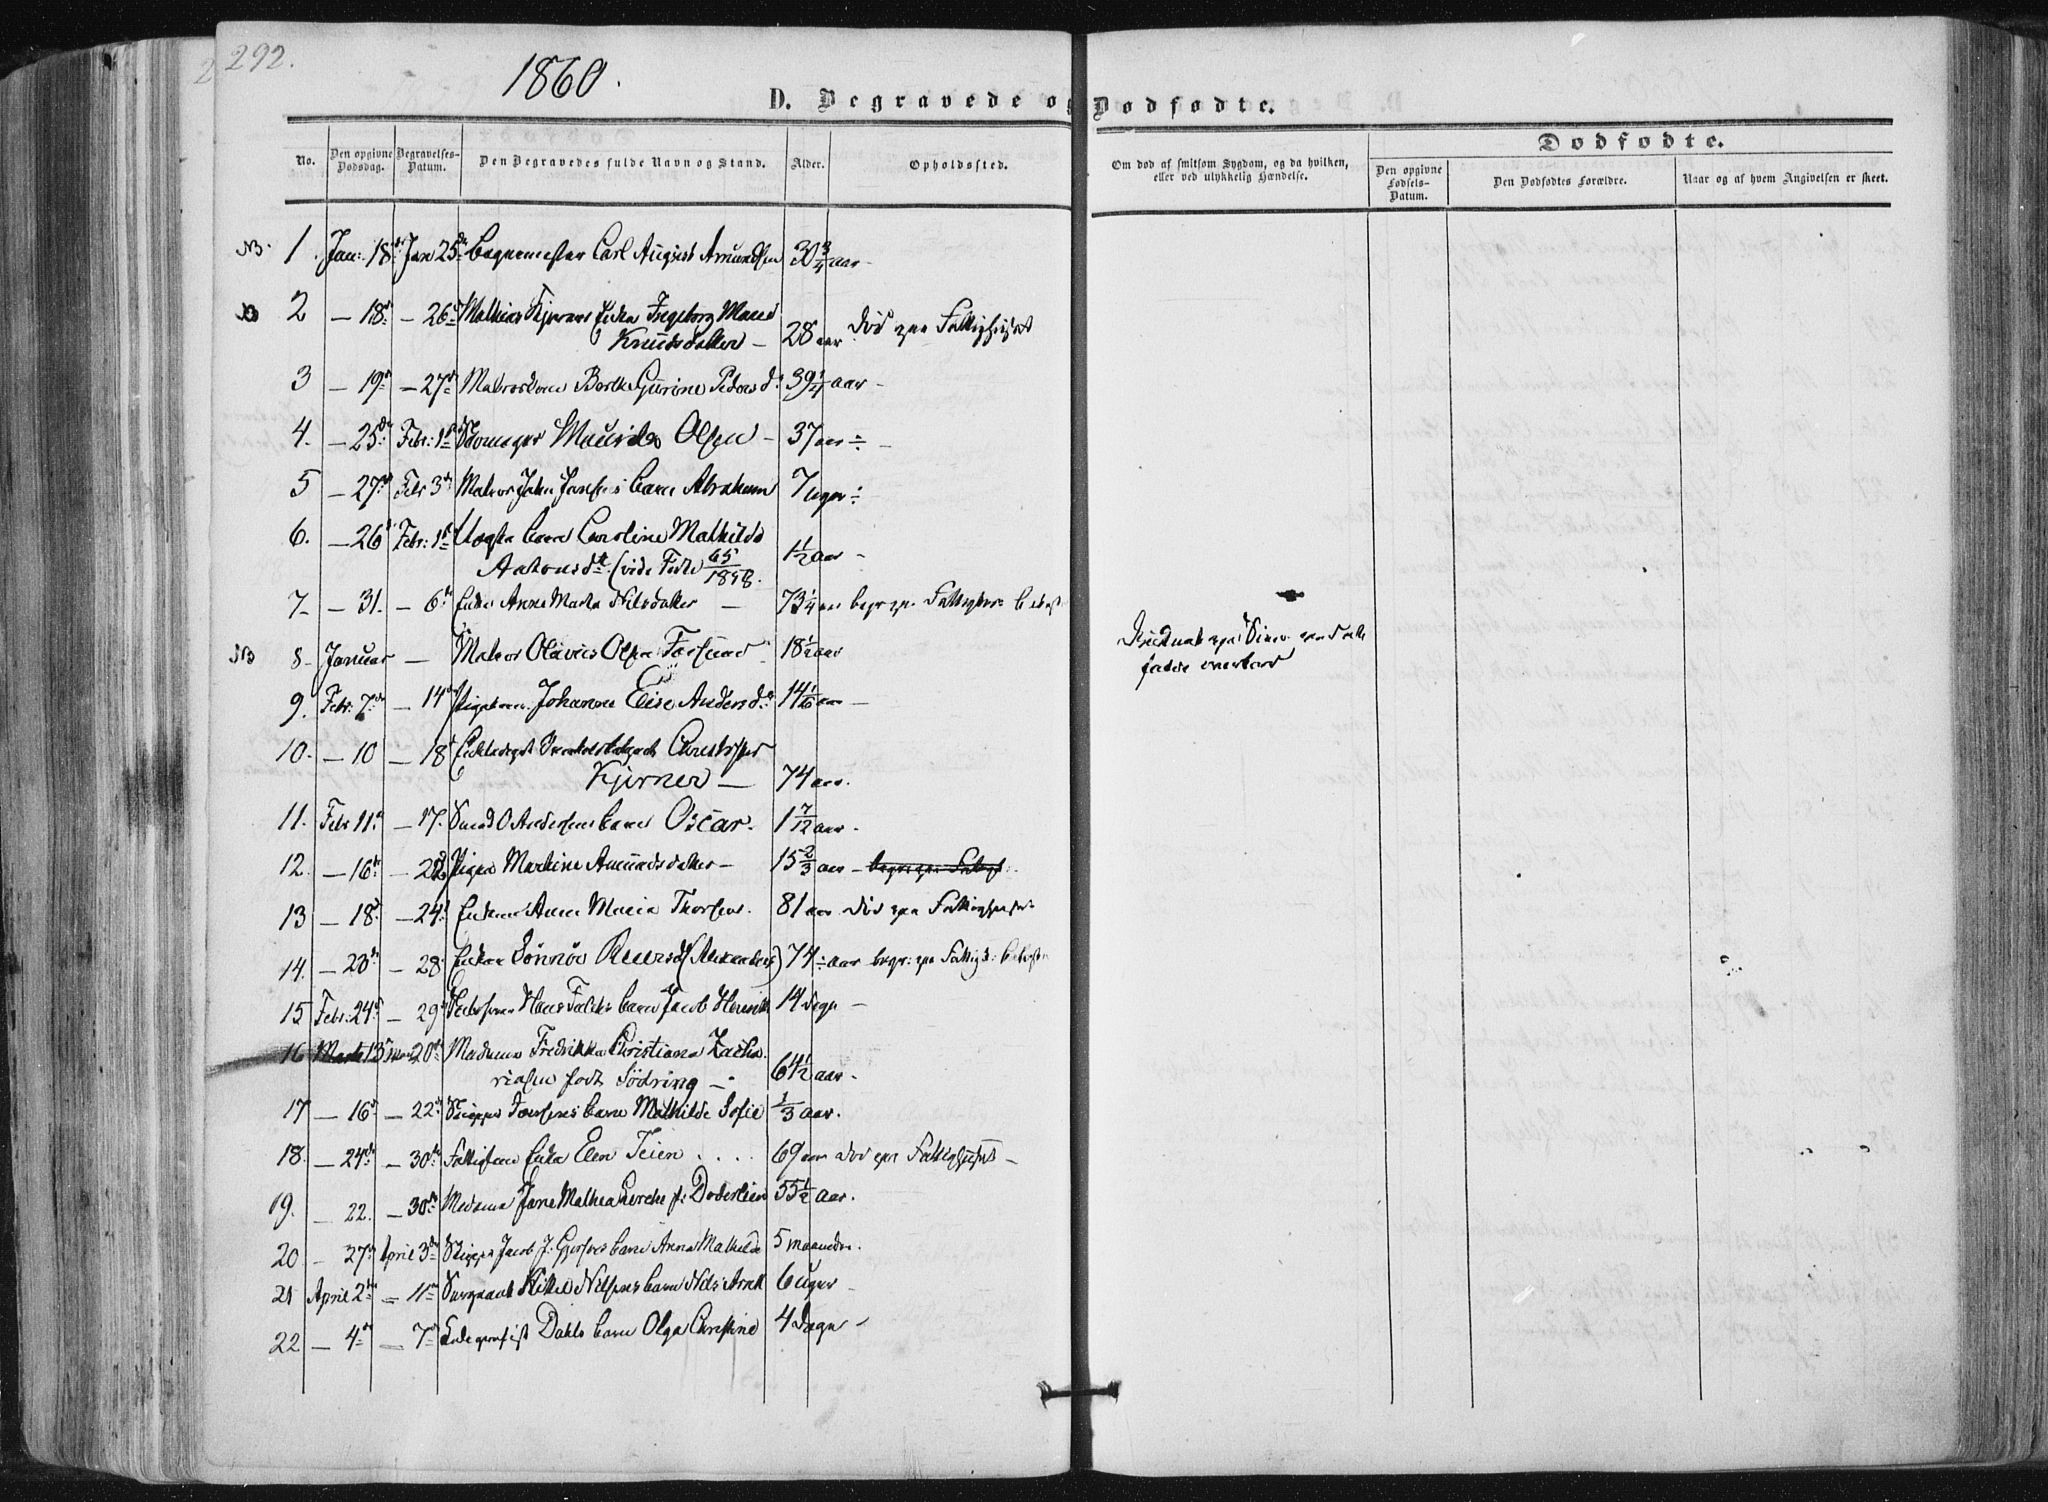 292.
1860.
D. Begravede og Dødfødte.
Dødfødte.
No. Den opgivne Dødsdag. Begravelses-Datum. Den Begravedes fulde Navn og Stand. Alder. Opholdssted. Om død af smitsom Sygdom, og da hvilken, eller ved ulykkelig Hændelse. Den opgivne Fødsels-Datum. Den Dødfødtes Forældre. Naar og af hvem Angivelsen er skeet.
NB. 1. Jan: 18de Jan 25de Bagermester Carl August Amundsen 30 3/4 aar -
2 - 18de - 26de Mathias Enke Ingeborg Marie
Knudsdatter - 28 aar død paa Fattighuset
3 - 19de - 27de Berthe Gurine Peders d: 39 1/4 aar -
4. - 25de Febr: 1ste Olsen - 37 aar -
5 - 27de Febr 3de Matros John Jansens barn Abraham 7 uger
6. - 26 Febr: 1ste barn Caroline Mathilde
Antons d. (vide Fødte 65/1858. 1 1/2 aar -
7 - 31. - 6te Enke Anne Marta Nilsdatter - 73 1/4 aar begr: paa
NB 8 - Januar - Matros Olavus Olsen 18 1/2 aar Druknet paa
9. Febr: 7de - 14de Johanne Elise Anders d: 14 1/6 aar -
10. - 10 - 18 Christopher
Kjerner - 74 aar.
11. Febr 11te - 17. Andersens barn Oscar. 1 7/12 aar.
12. - 16de - 22 Pigen Martine Amundsdatter - 15 2/3 aar -
13 - 18de - 24de Enken Anne Maria Thorsen. 81 aar død paa Fattighuset
14. - 20de - 28 Enken 74 aar begr: paa
15 Febr: 24de - 29de Hans Falcks barn Jacob Henrik 14 Dage -
16 Marts 13de 20de Madame Fredrikka Christiana Zacha
riasen født Södring - 64 1/2 aar -
17 - 16de - 22de barn Mathilde Sofie 1/3 aar.
18. - 24de - 30de Enke Elen Teien . . . . 69 aar død paa Fattighuset -
19. - 22. - 30te Madame Jane Mathea Lerche f: Doderlein 55 1/2 aar.
20 - 27de April 3de Jacob J. barn Anna Mathilde 5 maaneder.
21 April 2den - 11te Sergeant Nilsens barn Nils 6 uger -
22 - 4de - 7de Dahls barn Olga Christine 4 Dage -